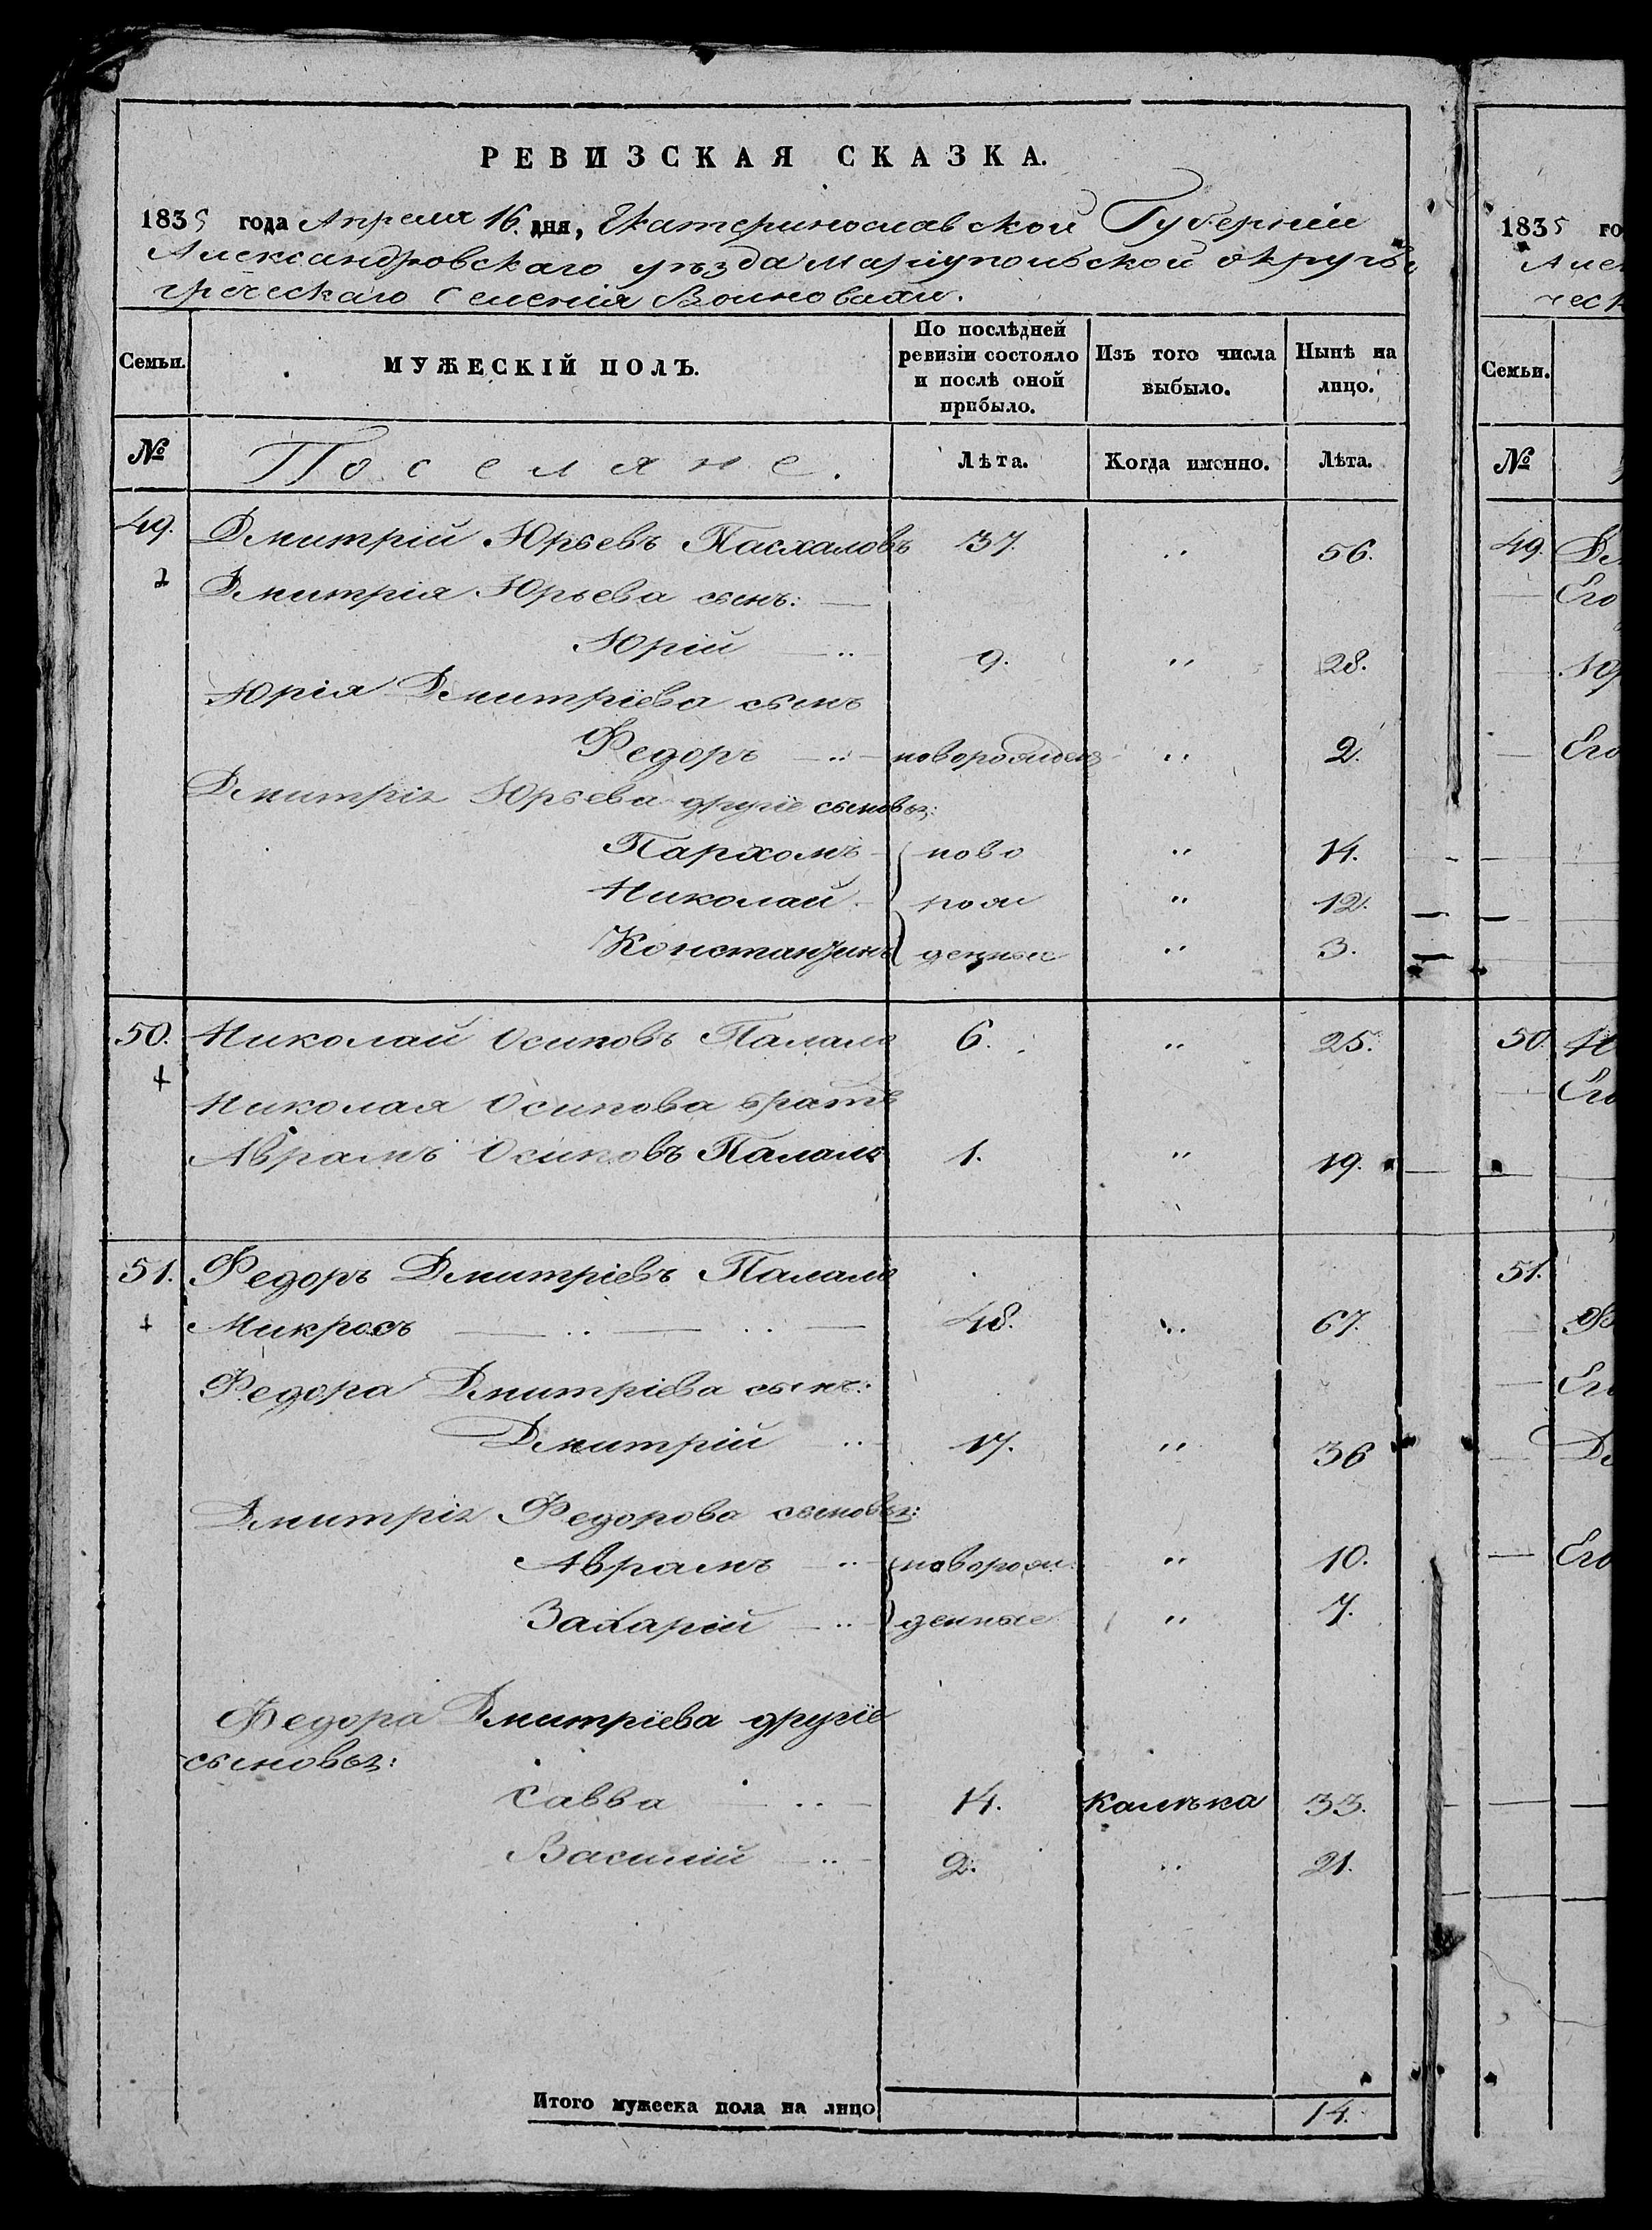 РЕВИЗСКАЯ СКАЗКА.
1835 года Апреля 16. дня, Екатеринославской Губерніи
Александровскаго уѣзда Маріупольской округѣ
греческаго селенія Волновахи.
Семьи. МУЖЕСКІЙ ПОЛЪ. По послѣдней ревизіи состояло и послѣ оной прибыло. Изъ того числа выбыло. Нынѣ на лицо.
№ Поселяне. Лѣта. Когда именно. Лѣта.
49. Дмитрій Юрьевъ Пасхаловъ 37. " 56.
Дмитрія Юрьева сынъ:
Юрій 9. " 28.
Юрія Дмитріева сынъ
Федоръ новорожденъ " 2.
Дмитрія Юрьева другіе сыновья:
Пархомъ ново " 14.
Николай рож " 12.
Константинъ денные " 3.
50. Николай Осиповъ Палала 6. " 25.
Николая Осипова братъ
Аврамъ Осиповъ Палала 1. " 19.
51. Федоръ Дмитріевъ Палала
Микросъ 48. " 67.
Федора Дмитріева сынъ:
Дмитрій 17. " 36
Дмитрія Федорова сыновья:
Аврамъ новорож " 10.
Захарій денные " 7.
Федора Дмитріева другіе
сыновья:
Савва 14. Калѣка 33.
Василій 2. " 21.
Итого мужеска пола на лицо 14.
1835 го
Але
ческ
Семьи.
№
49. Дм
Его
Юр
Его
50. Ни
Его
51.
Его
Дм
Его